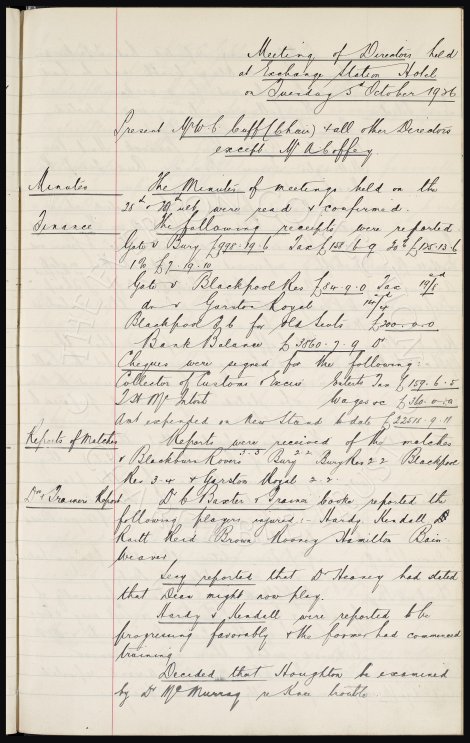 Meeting of Directors held
at Exchange Station Hotel
on Tuesday 5th October 1926
Present Mr W C Cuff (Chair) & all other Directors
except Mr A Coffey.
Minutes The Minutes of meetings held on the
28th & 29th ult were read & confirmed.
Finance The following receipts were reported
Gate v Bury £998.19.6 Tax £158.6.9 20% £125.13.6
1% £7.19.10
Gate v Blackpool Res £84.9.0 Tax 19/8d
do v Garston Royal 14/4d
Blackpool F C for old Seats £200.0.0
Bank Balance £3860.7.9 Dr
Cheques were signed for the following:-
Collector of Customs & Excise Enterts Tax £159.6.5
T H McIntosh Wages &c £360.0.0
Amt expended on New Stand to date £22515.9.11
Reports of Matches Reports were received of the matches
v Blackburn Rovers 3.3 Bury 2 2 Bury Res 2 2 Blackpool
Res 3.4 & Garston Royal 2.2.
Drs & Trainers Report Dr C Baxter & Trainer Cooke reported the
following players injured:- Hardy, Kendall
Raitt Reid Brown Rooney Hamilton Bain
Weaver
Secy reported that Dr Heaney had stated
that Dean might now play.
Hardy & Kendall were reported to be
progressing favorably & the former had commenced
training
Decided that Houghton be examined
by Dr McMurray re Knee trouble.